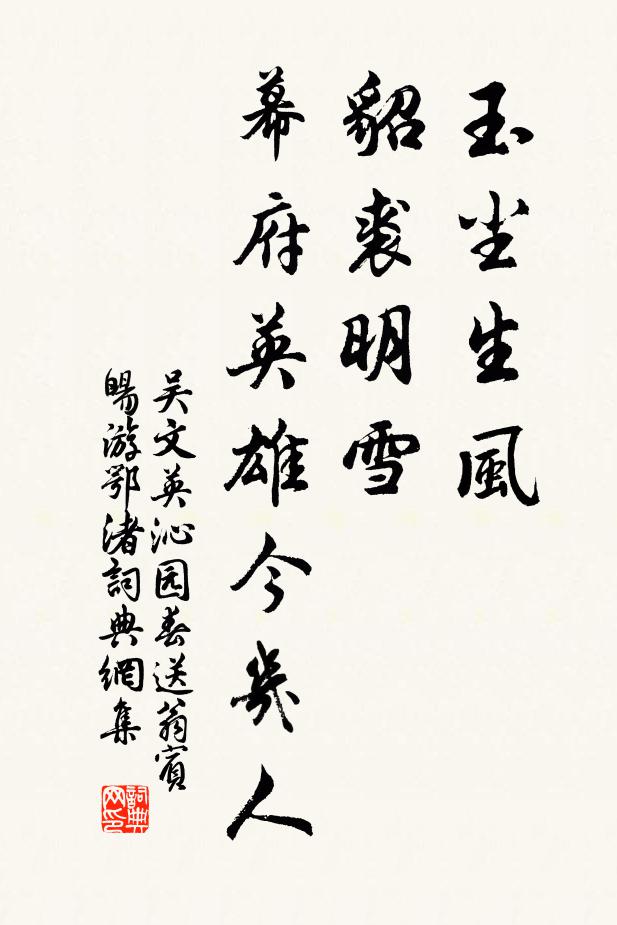 玉尘生風
貂裘明雪
幕府英雄今幾人
吴文英沁园春送翁賓
暘游鄂渚詞典網集
詞典
网印